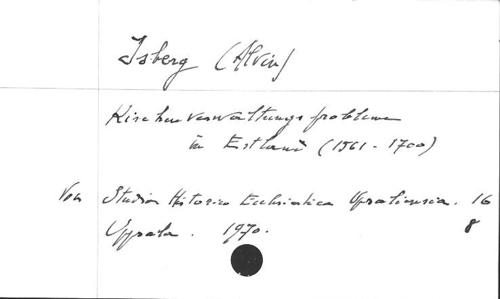 Isberg (Alvin)
Kirchenverwaltungsprobleme
in Estland (1561-1700)
Von Studia Historico Ecclesiastica Upsaliensia. 16
Uppsala. 1970. 8